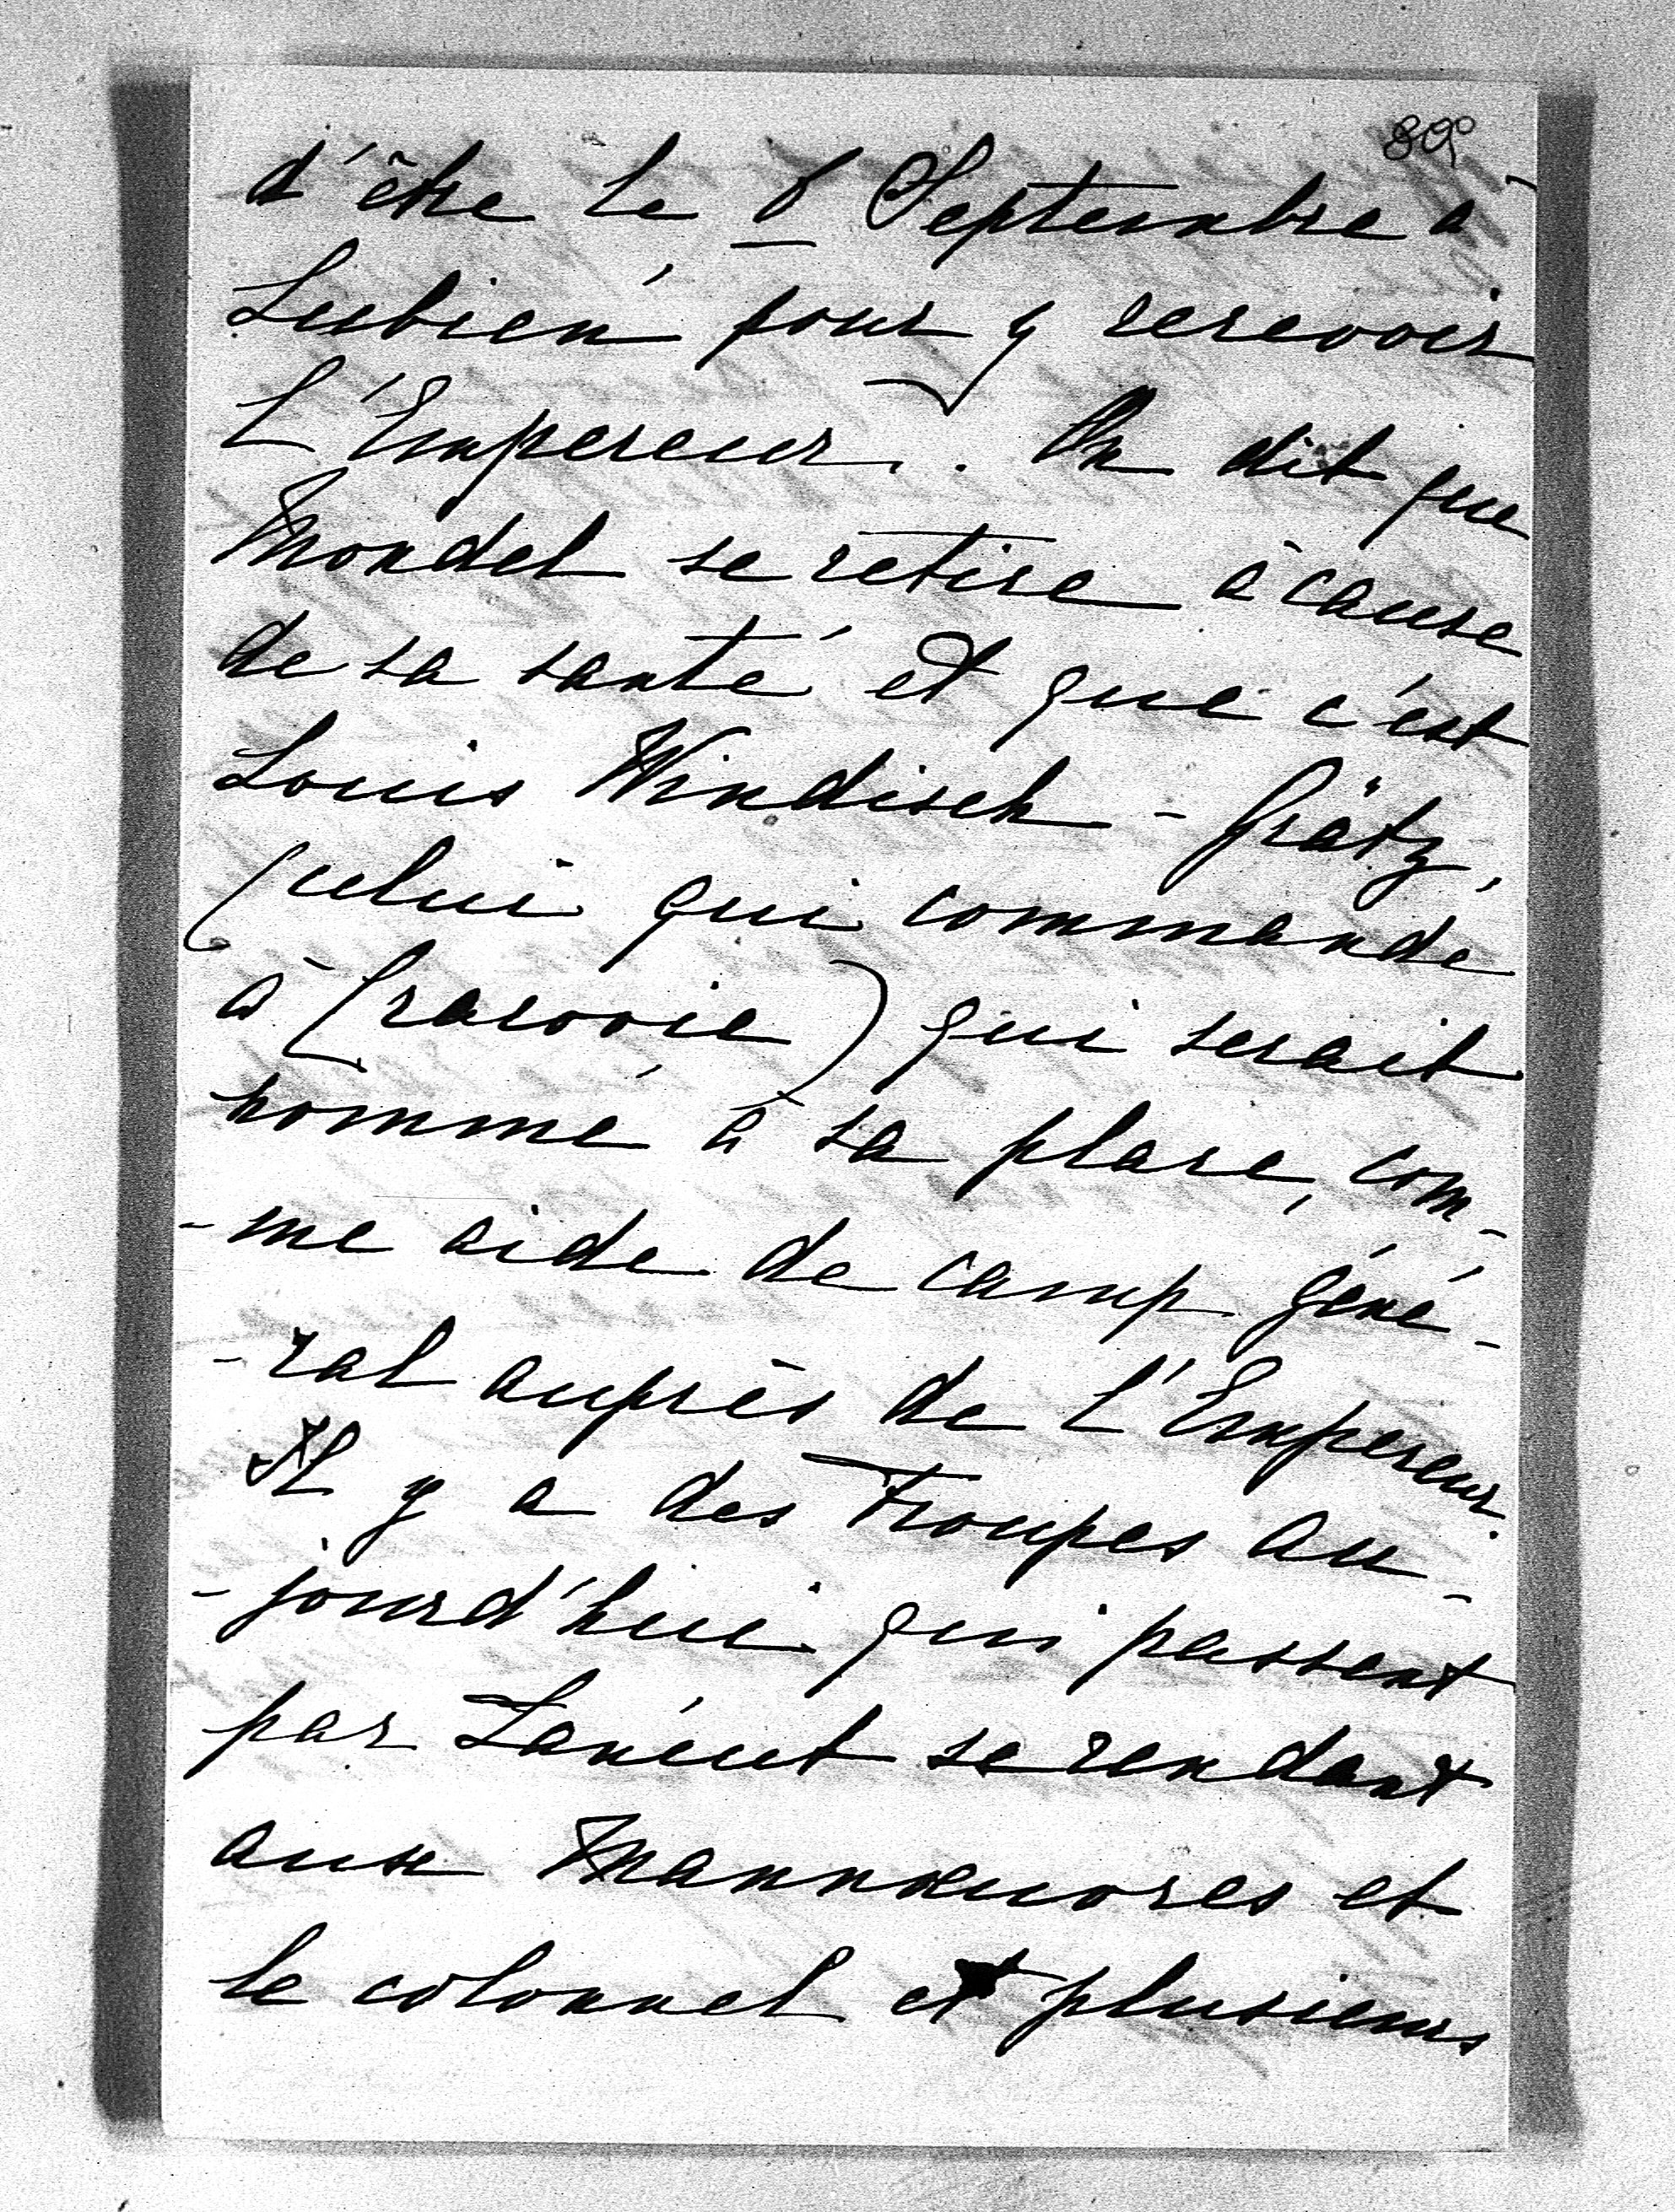 809
d'être le 8 Septembre à
Lubień pour y recevoir
L'Empereur. On dit que
Mondel se retire à cause
de sa santé et que c'est
Louis Windisch-Grätz,
(celui qui commande
à Cracovie) qui serait
nommé à sa place, com-
-me aide de camp géné-
-ral auprès de L'Empereur.
Il y a des troupes au-
-jourd'hui qui passent
par Łańcut se rendant
aux Mannœuvres et
le colonnel et plusieurs